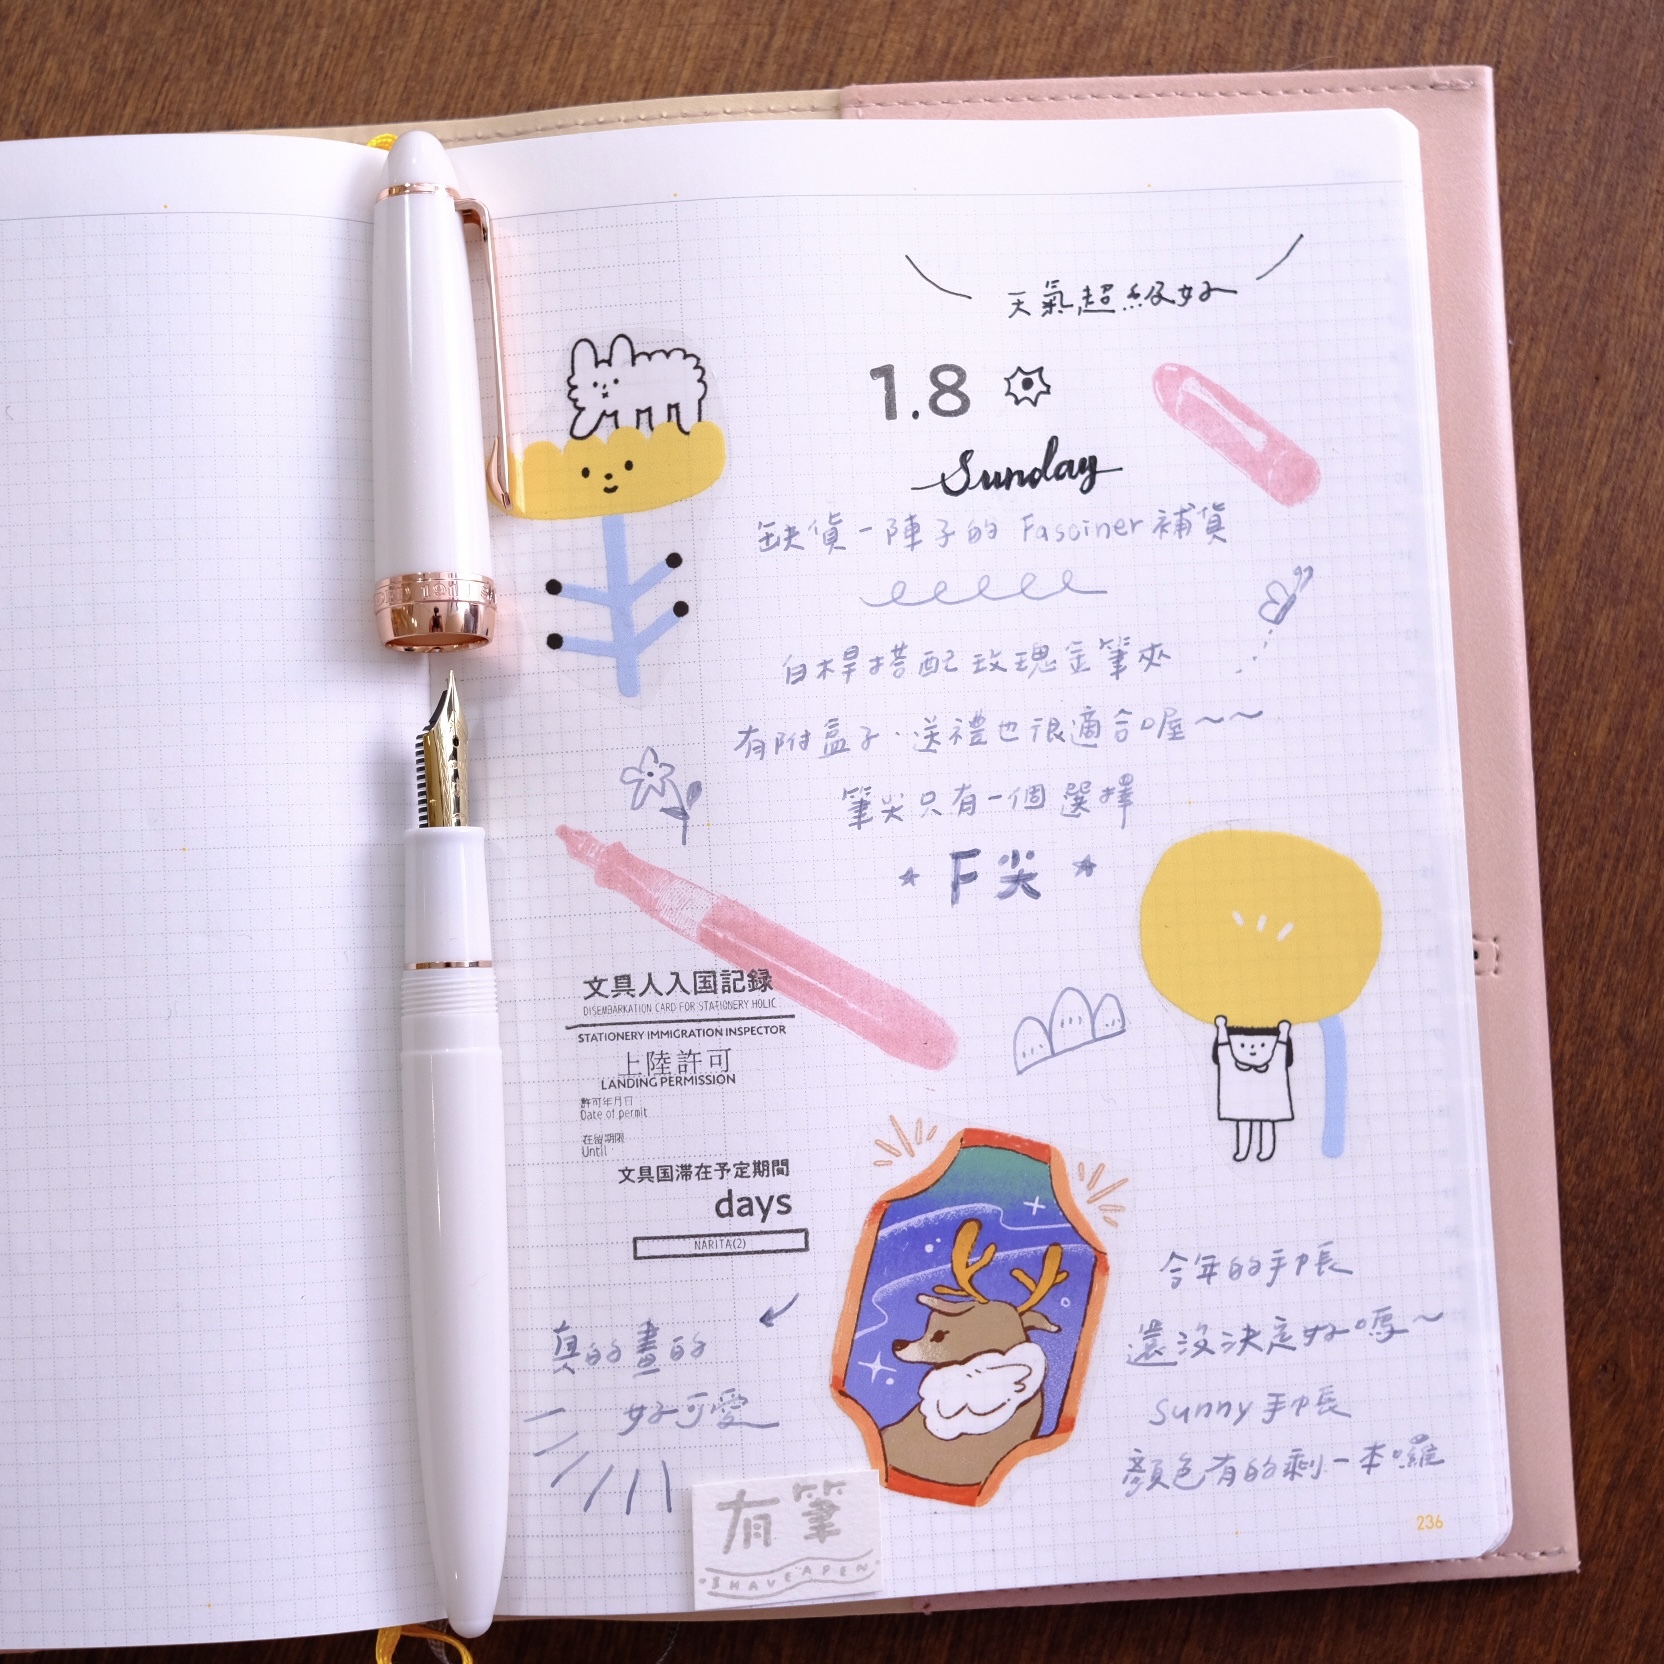 天氣超級好
1.8
Sunday
缺貨一陣子的 Fasciner 補貨
白桿搭配玫瑰金筆夾
有附盒子.送禮也很適合喔~~
筆尖只有一個選擇
F尖
文具人入国記録
DISEMBARKATION CARD FOR STATIONERY HOLIC
STATIONERY IMMIGRATION INSPECTOR
上陸許可
LANDING PERMISSION
許可年月日
Date of permit
在留期限
Until
文具国滞在予定期間
days
NARITA(2)
真的畫的
好可愛
今年的手帳
還沒決定好嗎~
Sunny 手帳
顏色有的剩一本囉
有筆
IHAVEAPEN
236